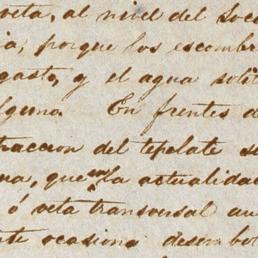 veta, al nivel del Soca
ia; porque los escombr
gasto, y el agua soli
lguna. En frentes d
traccion del tepetate se
na, que en la actualidad
ó veta transversal au
te ocasiona desembol